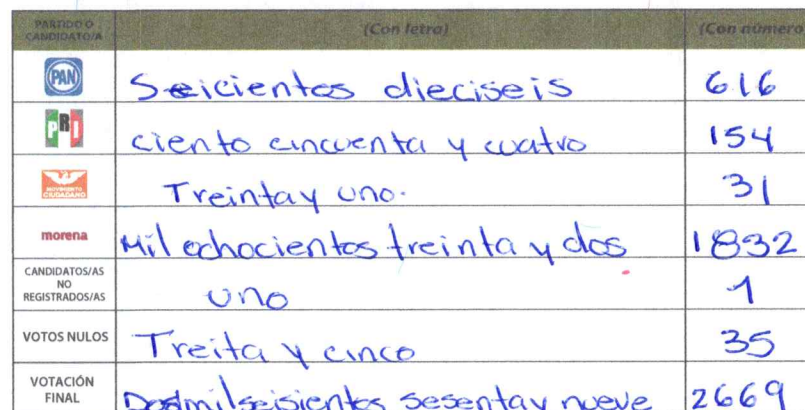 PARTIDO O CANDIDATO/A (Con letra) (Con número
PAN Seicientos dieciseis 616
PRI ciento cincuenta y cuatro 154
MOVIMIENTO CIUDADANO Treinta y uno. 31
morena Mil ochocientos treinta y dos 1832
CANDIDATOS/AS NO REGISTRADOS/AS uno 1
VOTOS NULOS Treita y cinco 35
VOTACIÓN FINAL seisientos sesenta y nueve 2669